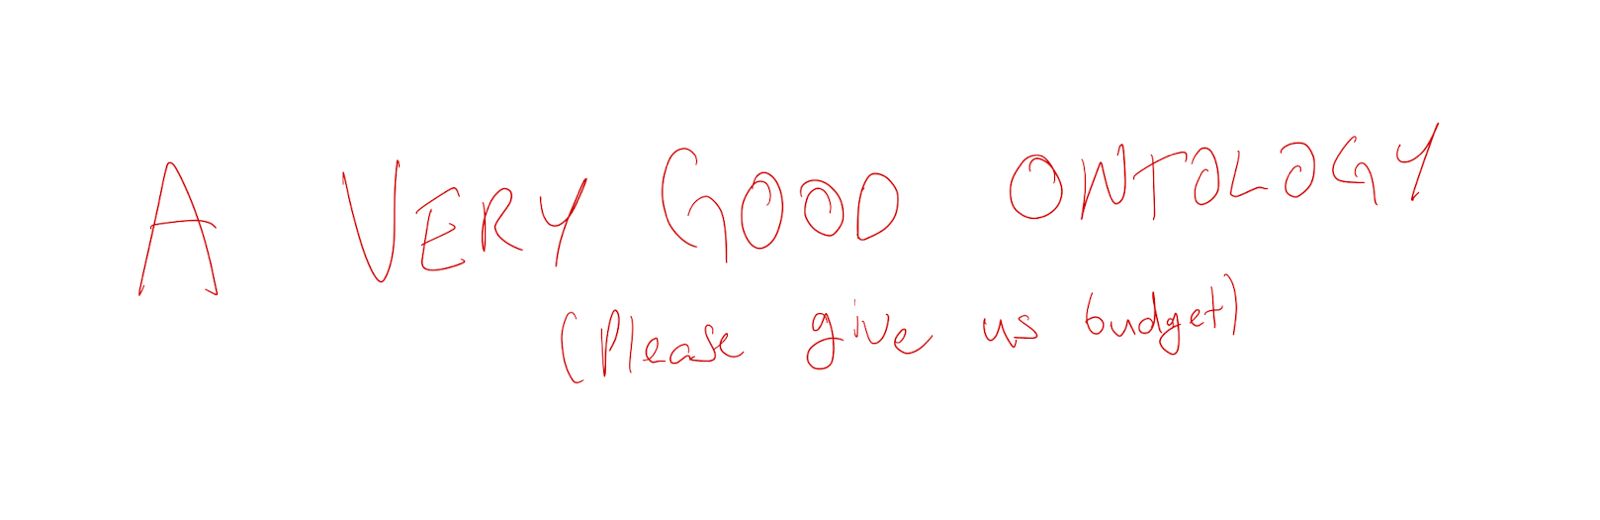 A VERY GOOD ONTOLOGY
(Please give us budget)